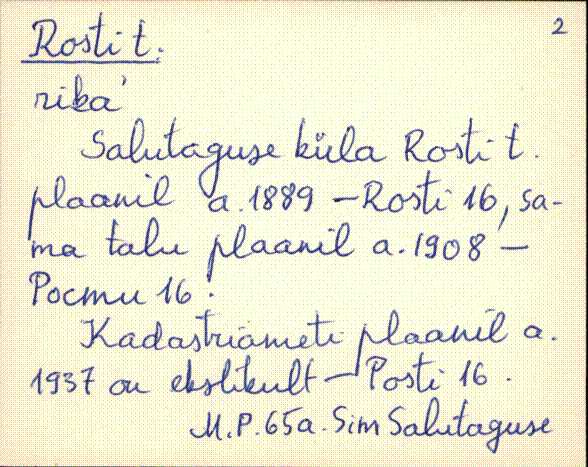 2
Rosti t.
rika'
Salutaguse küla Rosti t.
plaanil a. 1889 – Rosti 16, sa-
ma talu plaanil a. 1908 –
Рости 16.
Kadastriameti plaanil a.
1937 on ekslikult – Posti 16.
M.P. 65a. Sim Salutaguse